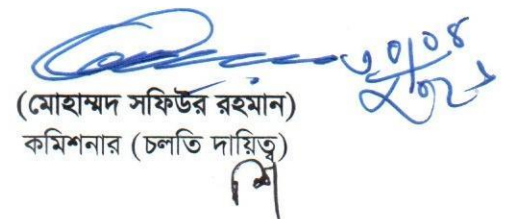 ৩০/০৪
(মোহাম্মদ সফিউর রহমান)
কমিশনার (চলতি দায়িত্ব)
শি